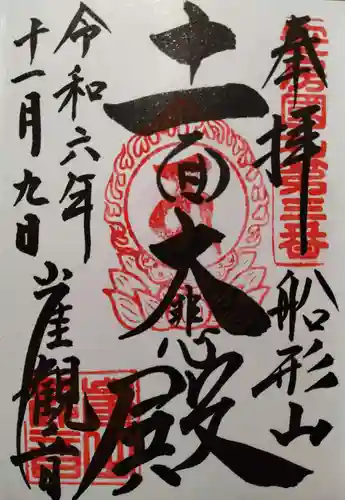 奉拝
船形山
十一面大悲殿
令和六年
十一月九日
崖観音